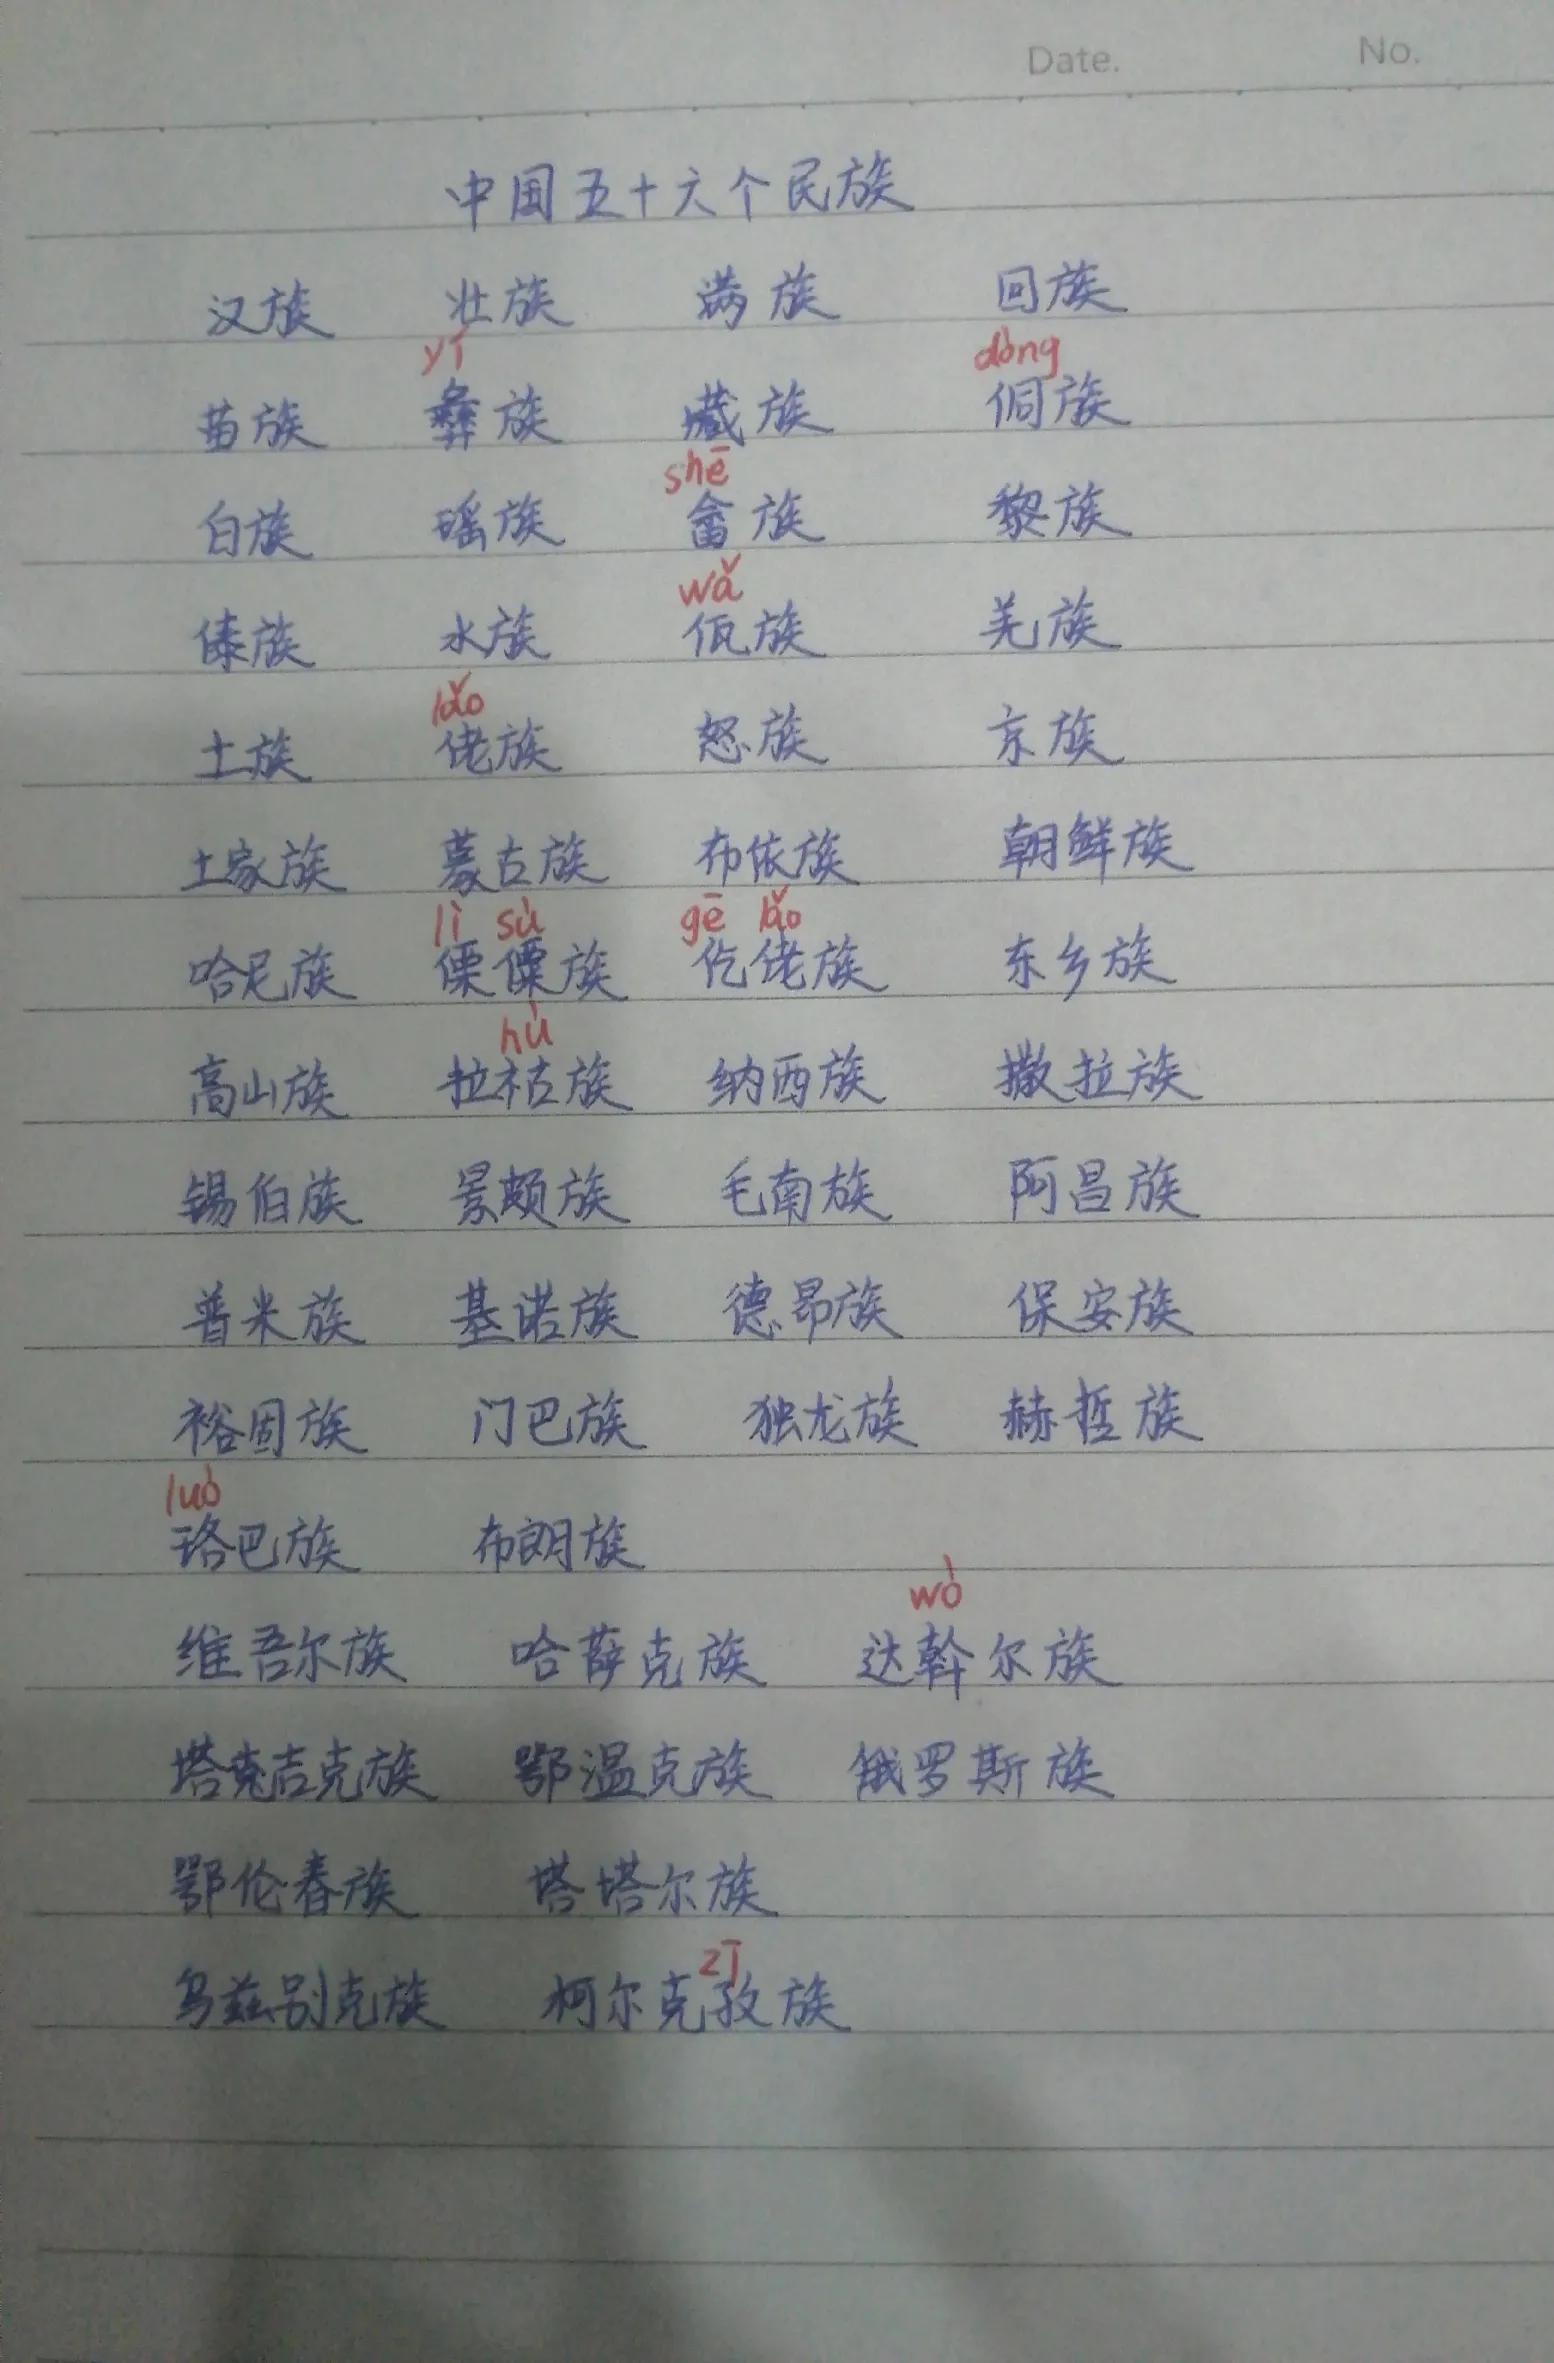 Date. No.
中国五十六个民族
汉族 壮族 满族 回族
yí dòng
苗族 彝族 藏族 侗族
shē
白族 瑶族 畲族 黎族
wǎ
傣族 水族 佤族 羌族
lǎo
土族 佬族 怒族 京族
土家族 蒙古族 布依族 朝鲜族
lì sù gē lǎo
哈尼族 傈僳族 仡佬族 东乡族
hù
高山族 拉祜族 纳西族 撒拉族
锡伯族 景颇族 毛南族 阿昌族
普米族 基诺族 德昂族 保安族
裕固族 门巴族 独龙族 赫哲族
luò
珞巴族 布朗族
wò
维吾尔族 哈萨克族 达斡尔族
塔克吉克族 鄂温克族 俄罗斯族
鄂伦春族 塔塔尔族
zī
乌兹别克族 柯尔克孜族